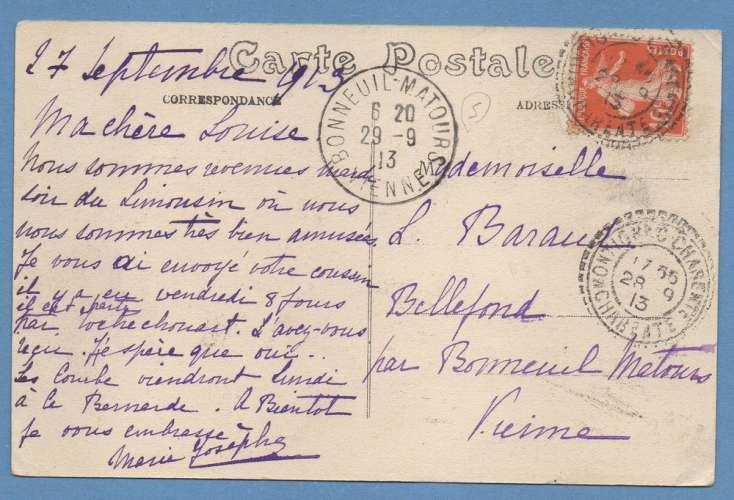 Carte Postale
27 Septembre 1913
CORRESPONDANCE
Ma chère Louise
Nous sommes revenues mardi
soir du Limousin où nous
nous sommes très bien amusés,
Je vous ai envoyé votre coussin
il y a eu vendredi 8 jours
il est parti
par Rochechouart. L'avez-vous
reçu. J'espère que oui..
Les Combe viendront lundi
à la Bernarde. A Bientôt
Je vous embrasse
Marie Josèphe
BONNEUIL-MATOURS
6 20
29 -9
13
VIENNE
5
ADRESSE
Mademoiselle
L. Baraud
Bellefond
par Bonneuil Matours
Vienne
POSTES
28 9
13
CHARENTE
MONTIGNAC-CHARENTE
17 55
28 9
13
CHARENTE